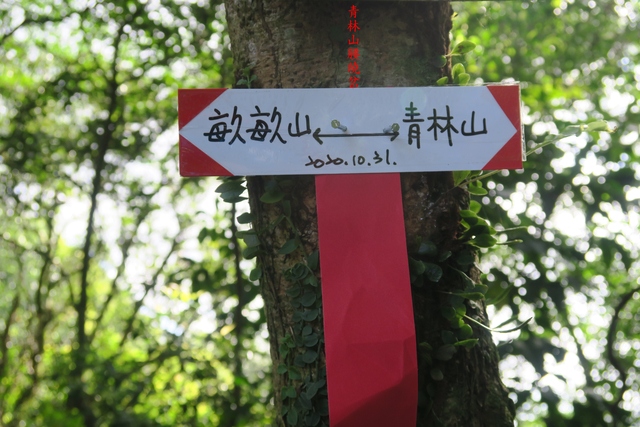 青林山
畝畝山 ←→ 青林山
2020.10.31.